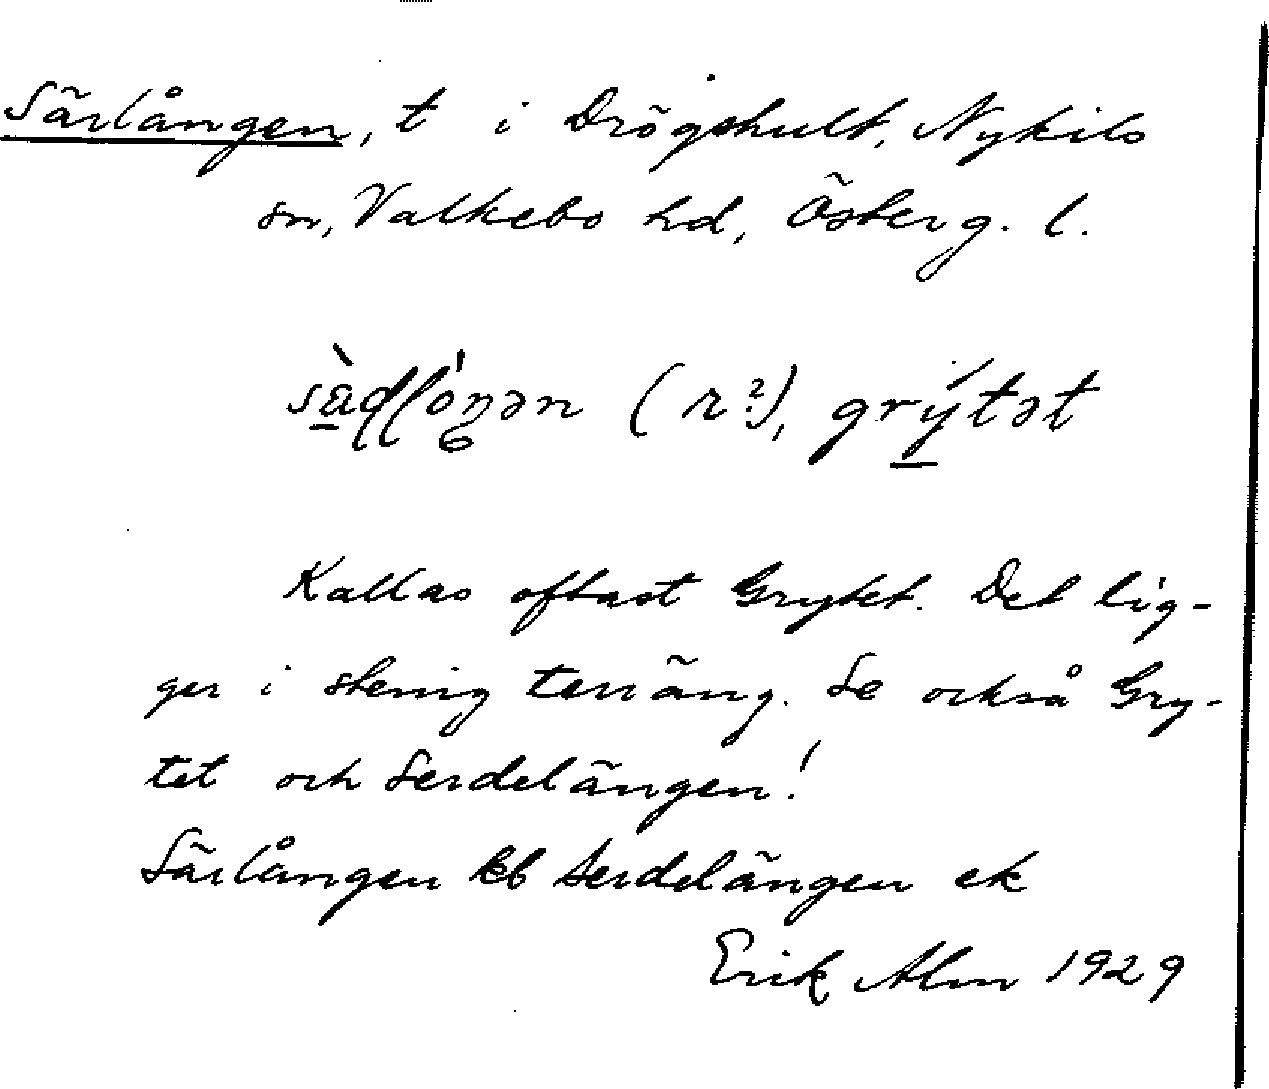 Särlången, t i Drögshult, Nykils
sn, Valkebo hd, Österg. l.
(r?), grýtət
Kallas oftast Grytet. Det lig-
ger i stenig terräng. Se också Gry-
tet och Serdelängen!
Särlången kb Serdelängen ek
Erik Alm 1929